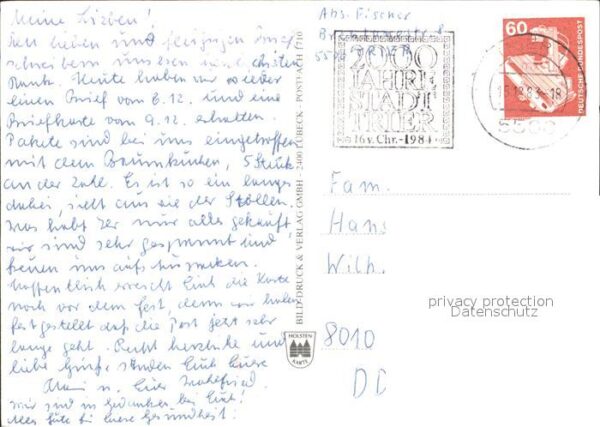 Meine Lieben!
Ihr lieben und fleißigen
schreiber müssen
Dank. Heute haben wir
einen Brief vom 6.12. und eine
Briefkarte vom 9.12. erhalten.
Pakete sind bei uns eingetroffen
mit dem Baumkuchen, 5 Stück
an der Zahl. Es ist so ein langes
dabei, sieht aus wie der Stollen.
Was habt Ihr nur alles gekauft,
wir sind sehr gespannt und
freuen uns aufs Auspacken.
Hoffentlich erreicht Euch die Karte
noch vor dem Fest, denn wir haben
festgestellt daß die Post jetzt sehr
lange geht. Recht herzliche und
liebe Grüße, senden Euch Eure
u. Euer
Wir sind in Gedanken bei Euch!
Alles Gute für Eure Gesundheit!
BILD-DRUCK & VERLAG GMBH - 2400 LÜBECK - POSTFACH 1710
HOLSTEN
KARTE
Abs. Fischer
TRIER
2000
JAHRE
STADT
TRIER
16 v. Chr. - 1984
TRIER
5500
60
DEUTSCHE BUNDESPOST
Fam.
Hans
Wilh.
8010
DD
privacy protection
Datenschutz